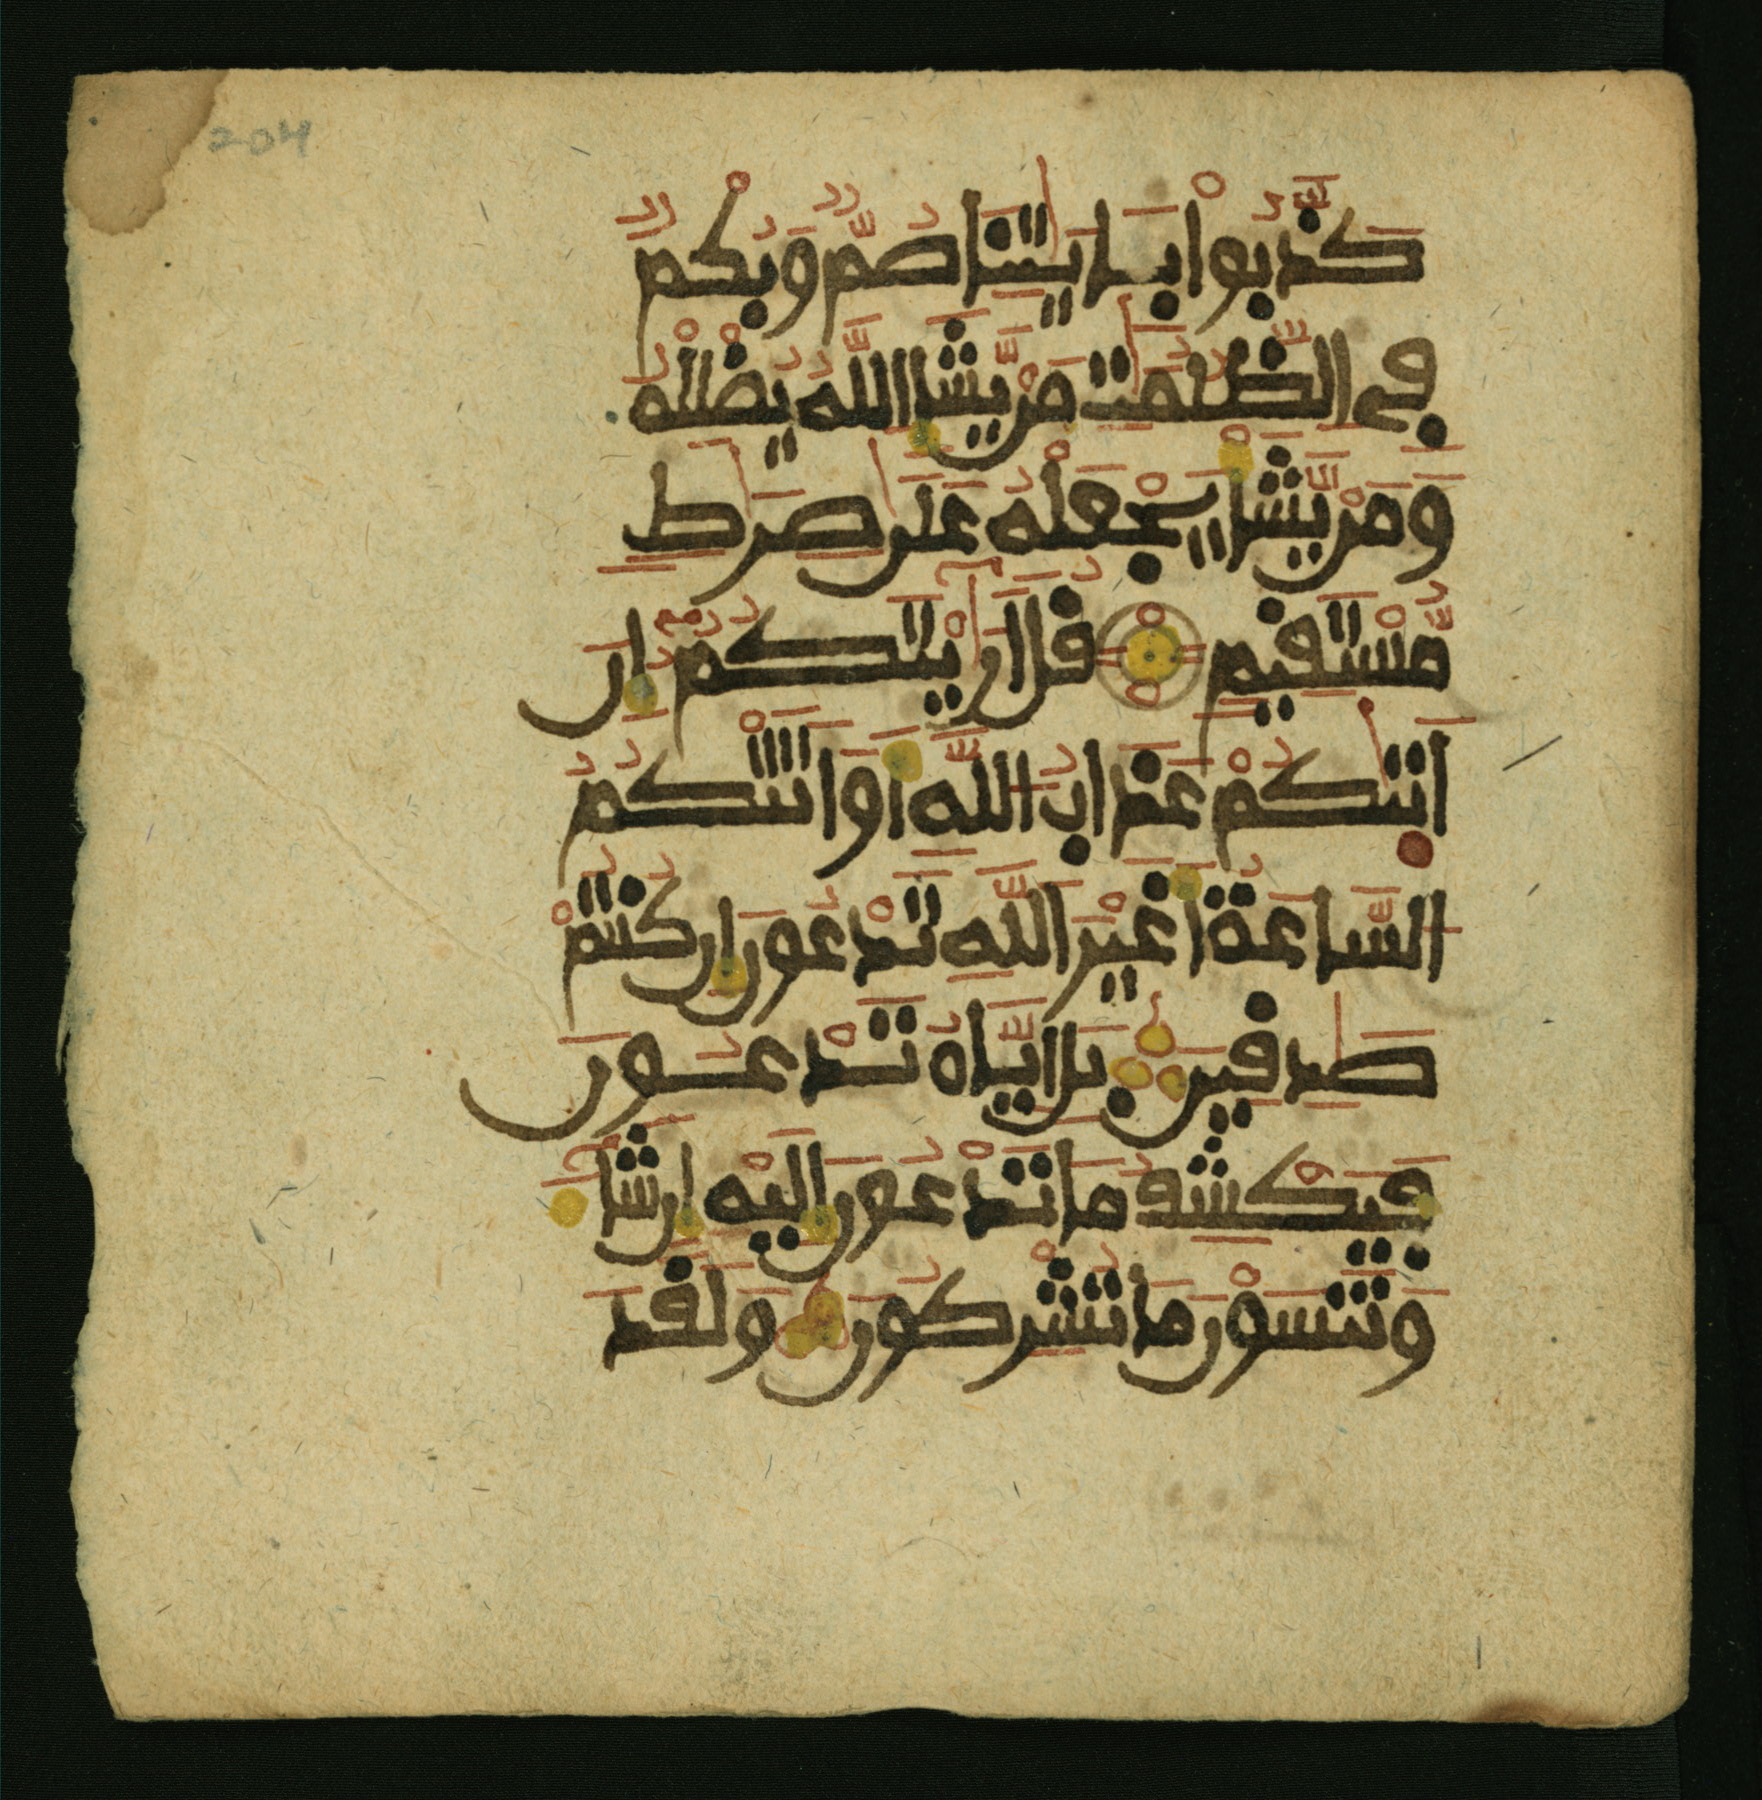 204
كَذَّبُواْ بِـَٔايَٰتِنَا صُمٌّ وَبُكْمٌ
فِى الظُّلُمَٰتِ مَنْ يَّشَإِ اللَّهُ يُضْلِلْهُ
وَمَنْ يَّشَأْ يَجْعَلْهُ عَلَىٰ صِرَٰطٍ
مُّسْتَقِيمٍ قُلَ اَرَٰيْتَكُمُ إِنَ
اَتَىٰكُمْ عَذَابُ اللَّهِ أَوَ اَتَتْكُمُ
السَّاعَةُ أَغَيْرَ اللَّهِ تَدْعُونَ إِن كُنتُمْ
صَٰدِقِينَ بَلِ ايَّاهُ تَدْعُونَ
فَيَكْشِفُ مَا تَدْعُونَ إِلَيْهِ إِن شَآءَ
وَتَنسَوْنَ مَا تُشْرِكُونَ وَلَقَدَ